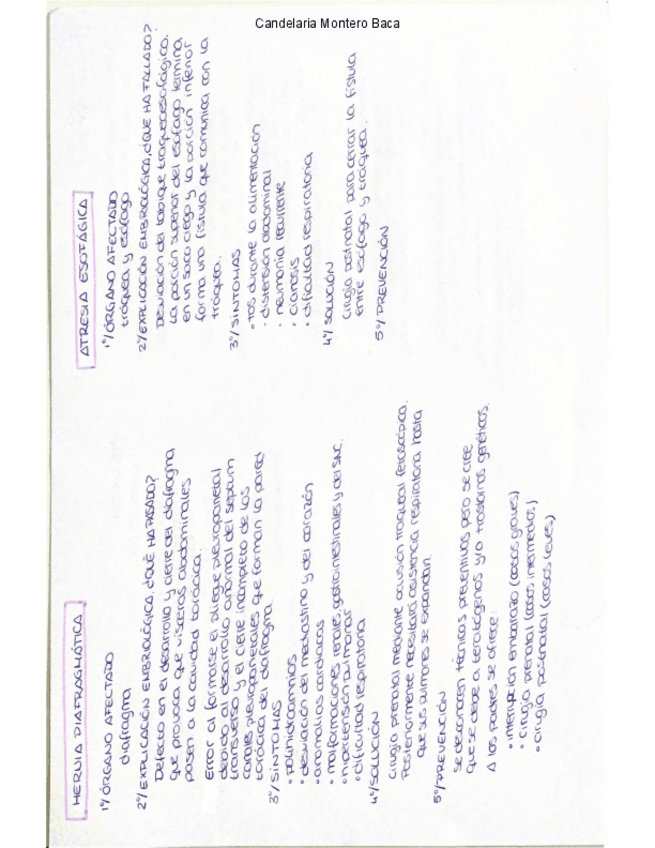 Candelaria Montero Baca
HERNIA DIAFRAGMÁTICA
1º/ÓRGANO AFECTADO
diafragma
2º/EXPLICACIÓN EMBRIOLÓGICA, ¿QUÉ HA PASADO?
Defecto en el desarrollo y cierre del diafragma
que provoca que vísceras abdominales
pasen a la cavidad torácica.
Error al formarse el pliegue pleuropanietal
debido al desarrollo anormal del septum
transverso y el cierre incompleto de los
canales pleuropanietales que forman la pared
torácica del diafragma.
3º/SÍNTOMAS
• polihidroamnios
• desviación del mediastino y del corazón
• anomalías cardiacas
• malformaciones renales, gastrointestinales y del SNC.
• hipertensión pulmonar
• dificultad respiratoria
4º/SOLUCIÓN
Cirugía prenatal mediante oclusión traqueal fetoscópica.
Posteriormente necesitará asistencia respiratoria hasta
que sus pulmones se expandan.
5º/PREVENCIÓN
Se desconocen técnicas preventivas pero se cree
que se debe a teratógenos y/o trastornos genéticos.
A los padres se ofrece:
• interrupción embarazo (casos graves)
• cirugía prenatal (casos intermedios)
• cirugía posnatal (casos leves)
ATRESIA ESOFÁGICA
1º/ÓRGANO AFECTADO
tráquea y esófago
2º/EXPLICACIÓN EMBRIOLÓGICA, ¿QUE HA FALLADO?
Desviación del tabique traqueoesofágico.
La porción superior del esófago termina
en un saco ciego y la porción inferior
forma una fístula que comunica con la
tráquea.
3º/SÍNTOMAS
• tos durante la alimentación
• distensión abdominal
• neumonía recurrente
• cianosis
• dificultad respiratoria
4º/SOLUCIÓN
Cirugía postnatal para cerrar la fístula
entre esófago y tráquea.
5º/PREVENCIÓN